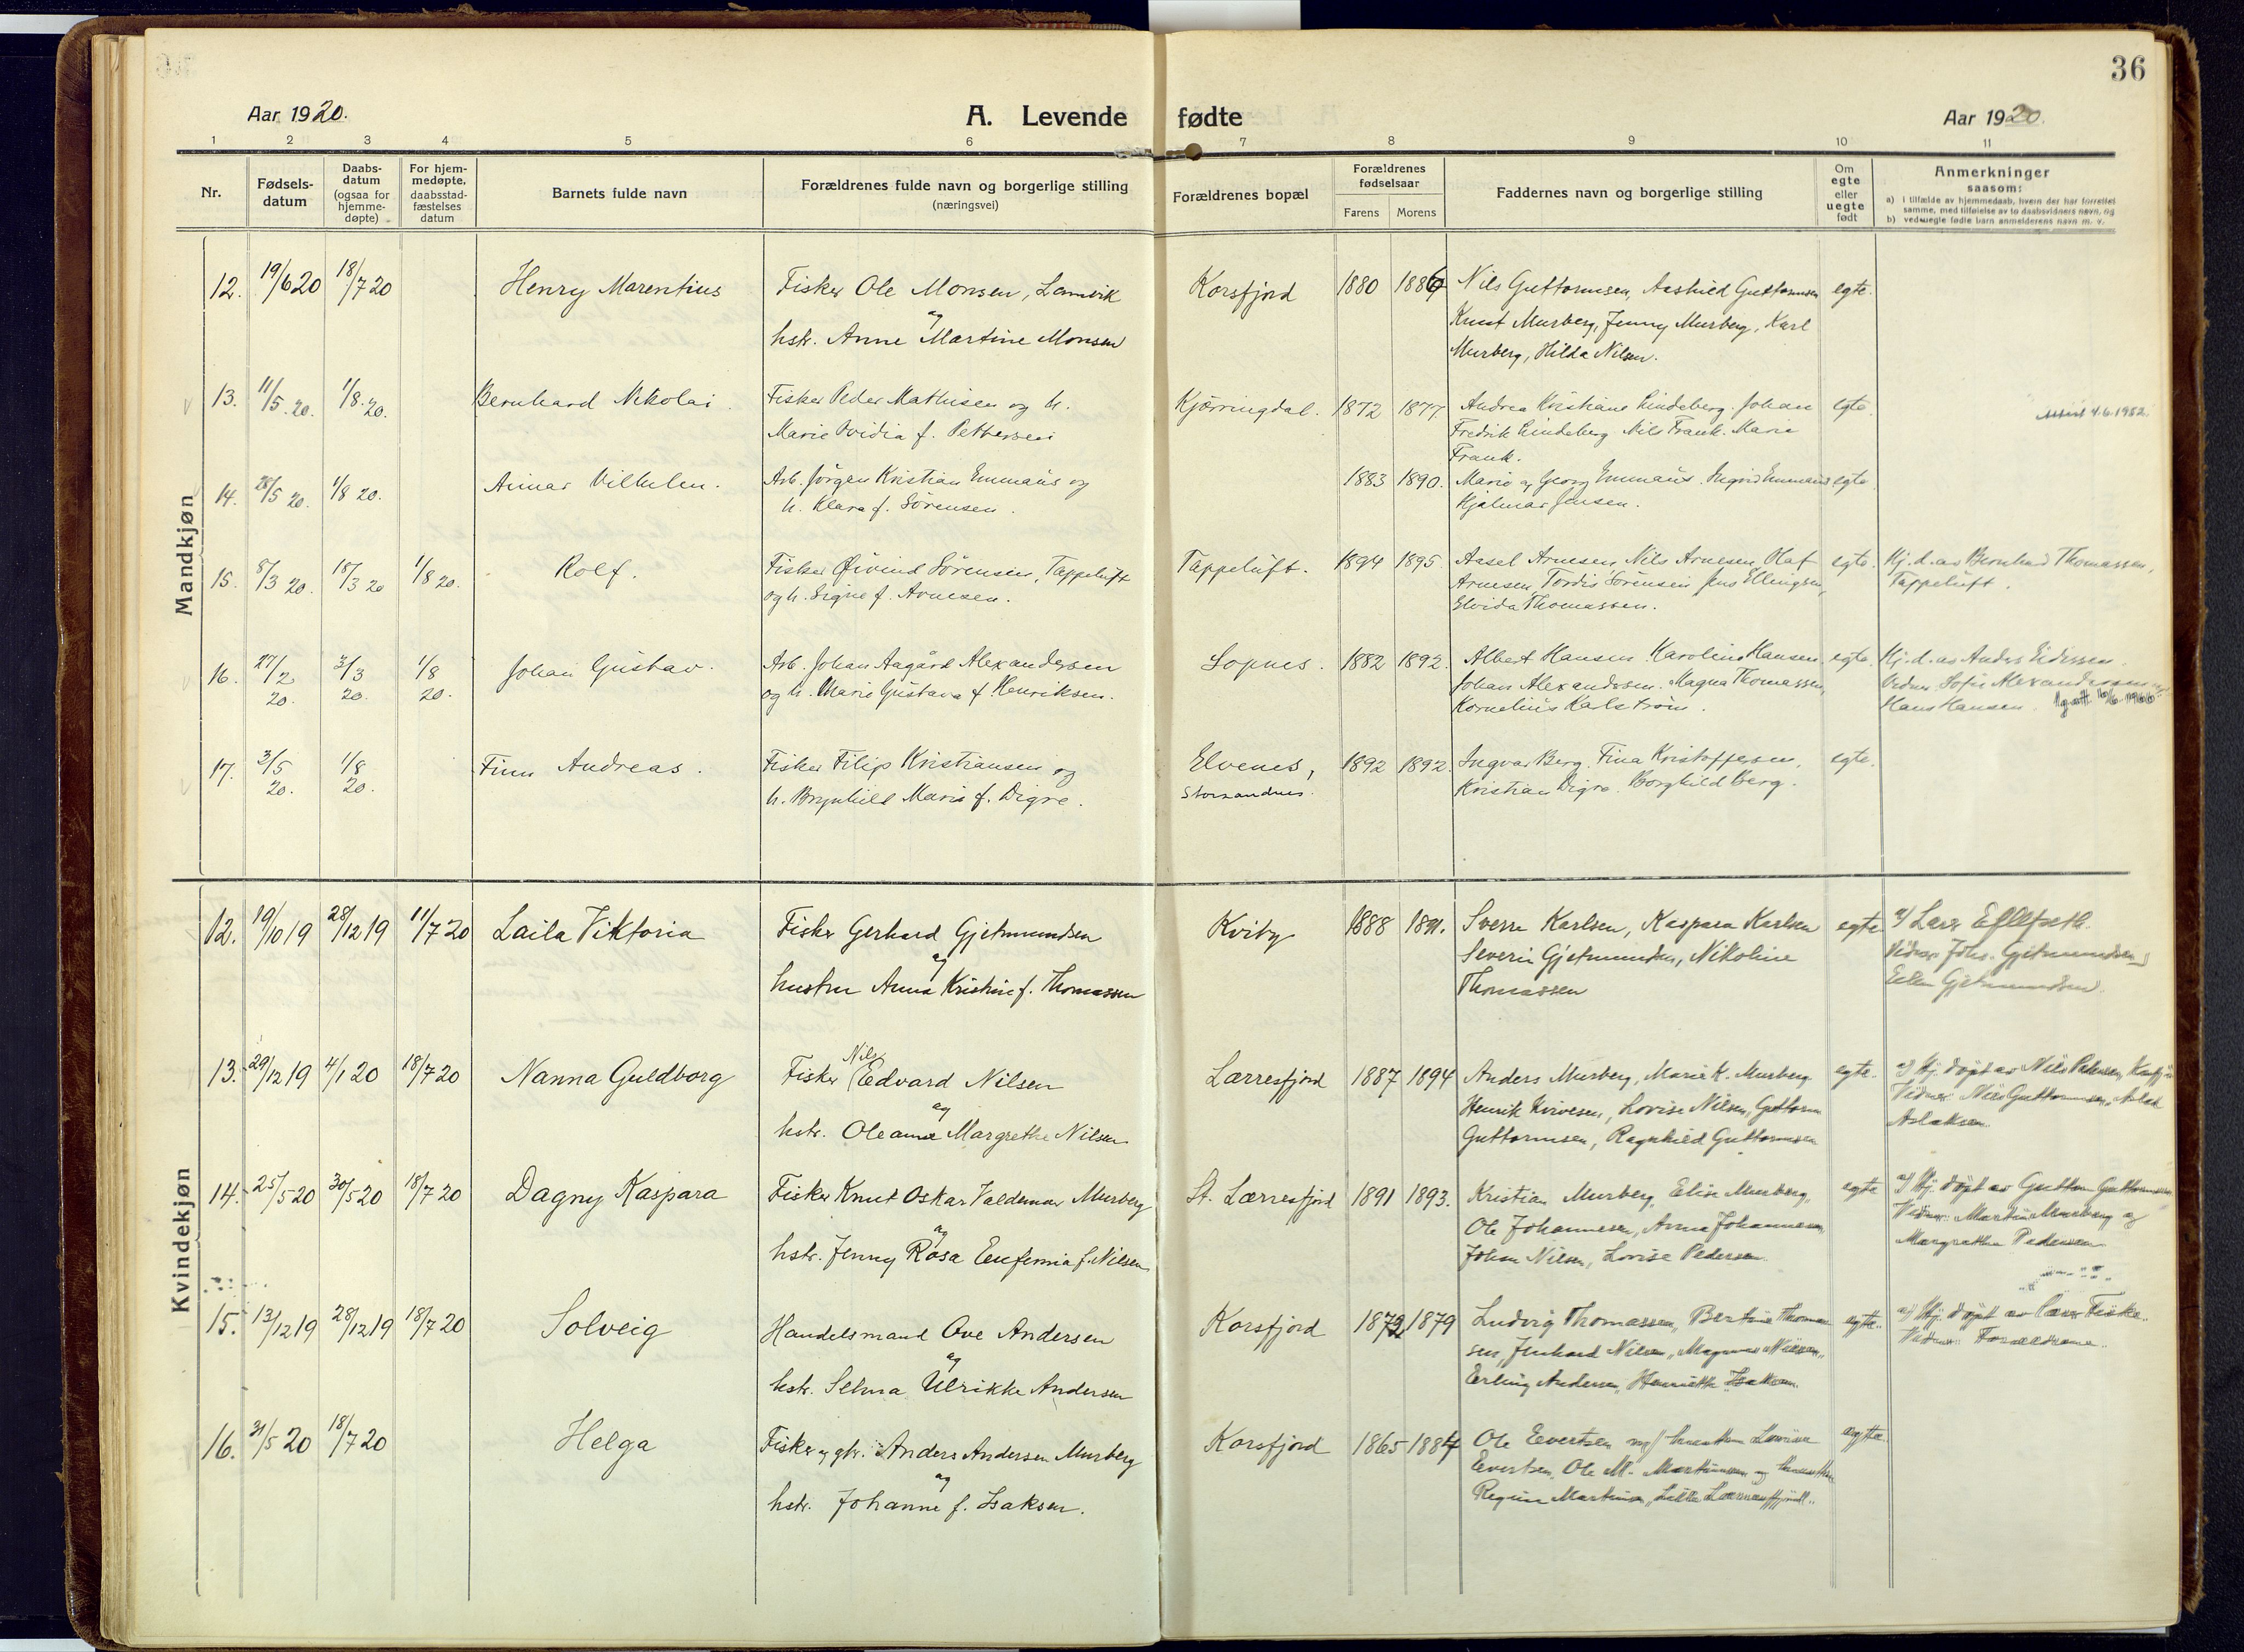 36
Aar 1920. A. Levende fødte Aar 1920.
1 2 3 4 5 6 7 8 9 10 11
Nr.
Fødsels-
datum
Daabs-
datum
(ogsaa for
hjemme-
døpte)
For hjem-
medøpte,
daabsstad-
fæstelses
datum
Barnets fulde navn
Forældrenes fulde navn og borgerlige stilling
(næringsvei)
Forældrenes bopæl
Forældrenes
fødselsaar
Farens Morens
Faddernes navn og borgerlige stilling
Om
egte
eller
uegte
født
Anmerkninger
saasom:
a) i tilfælde av hjemmedaab, hvem der har forrettet
samme, med tilføielse av to daabsvidners navn, og
b) ved uegte fødte barn anmelderens navn m. v.
Mandkjøn
12. 19/6 20 18/7 20 Henry Marentius Fisker Ole Monsen, Lamvik Korsfjord 1880 1886 Nils Guttormsen, Aashild Guttormsen egte.
og
hstr. Anne Martine Monsen Knut Murberg, Jenny Murberg, Karl
Murberg, Hilda Nilsen.
13. 11/5. 20. 1/8. 20. Bernhard Nikolai. Fisker Peder Mathisen og h. Kjørringdal. 1872 1877. Andrea Kristiane Lindeberg. Johan egte.
Marie Ovidia f. Pettersen Fredrik Lindeberg Nils Frank. Marie 4.6.1952.
Frank.
14. 28/5 20. 1/8 20. Ainar Vilhelm. Arb. Jörgen Kristian Emmaus og 1883 1890. Marie og Georg Emmaus. Ingrid Emmaus egte
h. Klara f. Sörensen. Hjalmar Jensen.
15. 8/3 20. 15/3 20 1/8 20. Rolf. Fisker Öivind Sörensen, Tappeluft Tappeluft. 1894 1895. Aasel Arnesen, Nils Arnesen, Olaf egte. Hj. d. av Bernhard Thomassen,
og h. Signe f. Arnesen. Arnesen, Tordis Sörensen Jens Ellingsen, Tappeluft.
Elvida Thomassen.
16. 27/2 20. 3/3 20. 1/8 20. Johan Gustav. Arb. Johan Aagård Alexandersen Sopnes. 1882 1892. Albert Hansen. Karoline Hansen egte. Hj. d. av Anders Eidissen.
og h. Marie Gustava f. Henriksen. Johan Alexandersen. Magna Thomassen, Vidner Sofie Alexandersen og
Kornelius Karlström. Hans Hansen. 1966
17. 3/5 20. 1/8 20. Finn Andreas. Fisker Filip Kristiansen og Elvenes, 1892 1892. Ingvar Berg. Fina Kristoffersen, egte.
h. Brynhild Marie f. Digre. Storsandnes. Kristian Digre. Borghild Berg.
Kvindekjøn
12. 19/10 19 28/12 19 11/7 20 Laila Viktoria Fisker Gerhard Gjetmundsen Kviby 1888 1891. Sverre Karlsen, Kaspara Karlsen egte a) Lars
og Severin Gjetmundsen, Nikoline Vidner Johs. Gjetmundsen,
hustru Anna Kristine f. Thomassen Thomassen Ellen Gjetmundsen.
13. 29/12 19 4/1 20 18/7 20 Nanna Guldborg Fisker Nils Edvard Nilsen Lærresfjord 1887 1894 Anders Murberg, Marie K. Murberg egte. a) Hj. døpt av Nils Pedersen,
og Henrik Kivesen, Lovise Nilsen, Guttorm Vidner Nils Guttormsen, Aslak
hstr. Oleanna Margrethe Nilsen Guttormsen, Ragnhild Guttormsen Aslaksen.
14. 25/5 20 30/5 20 18/7 20 Dagny Kaspara Fisker Knut Oskar Valdemar Murberg St. Lærresfjord 1891 1893. Kristian Murberg, Elise Murberg, egte a) Hj. døpt av Guttorm Guttormsen
og Ole Johannesen, Anna Johannesen Vidner: Martin Murberg og
hstr. Jenny Rosa Eufemia f. Nilsen Johan Nilsen, Lovise Pedersen Margrethe Pedersen
15. 13/12 19 28/12 19 18/7 20 Solveig Handelsmand Ove Andersen Korsfjord 1872 1879 Ludvig Thomassen, Bertine Thomas egte. a) Hj. døpt av Lars Fiske.
og sen, Jenhard Nilsen, Magna Nilsen, Vidner: Forældrene.
hstr. Selma Ulrikke Andersen Erling Andersen, Henriette Isaksen.
16. 31/5 20 18/7 20 Helga Fisker og gbr. Anders Andersen Murberg Korsfjord 1865 1884 Ole Evertsen og hustru Lovise egte.
og Evertsen, Ole M. Martinsen og hustru
hstr. Johanne f. Isaksen. Regine Martinsen,